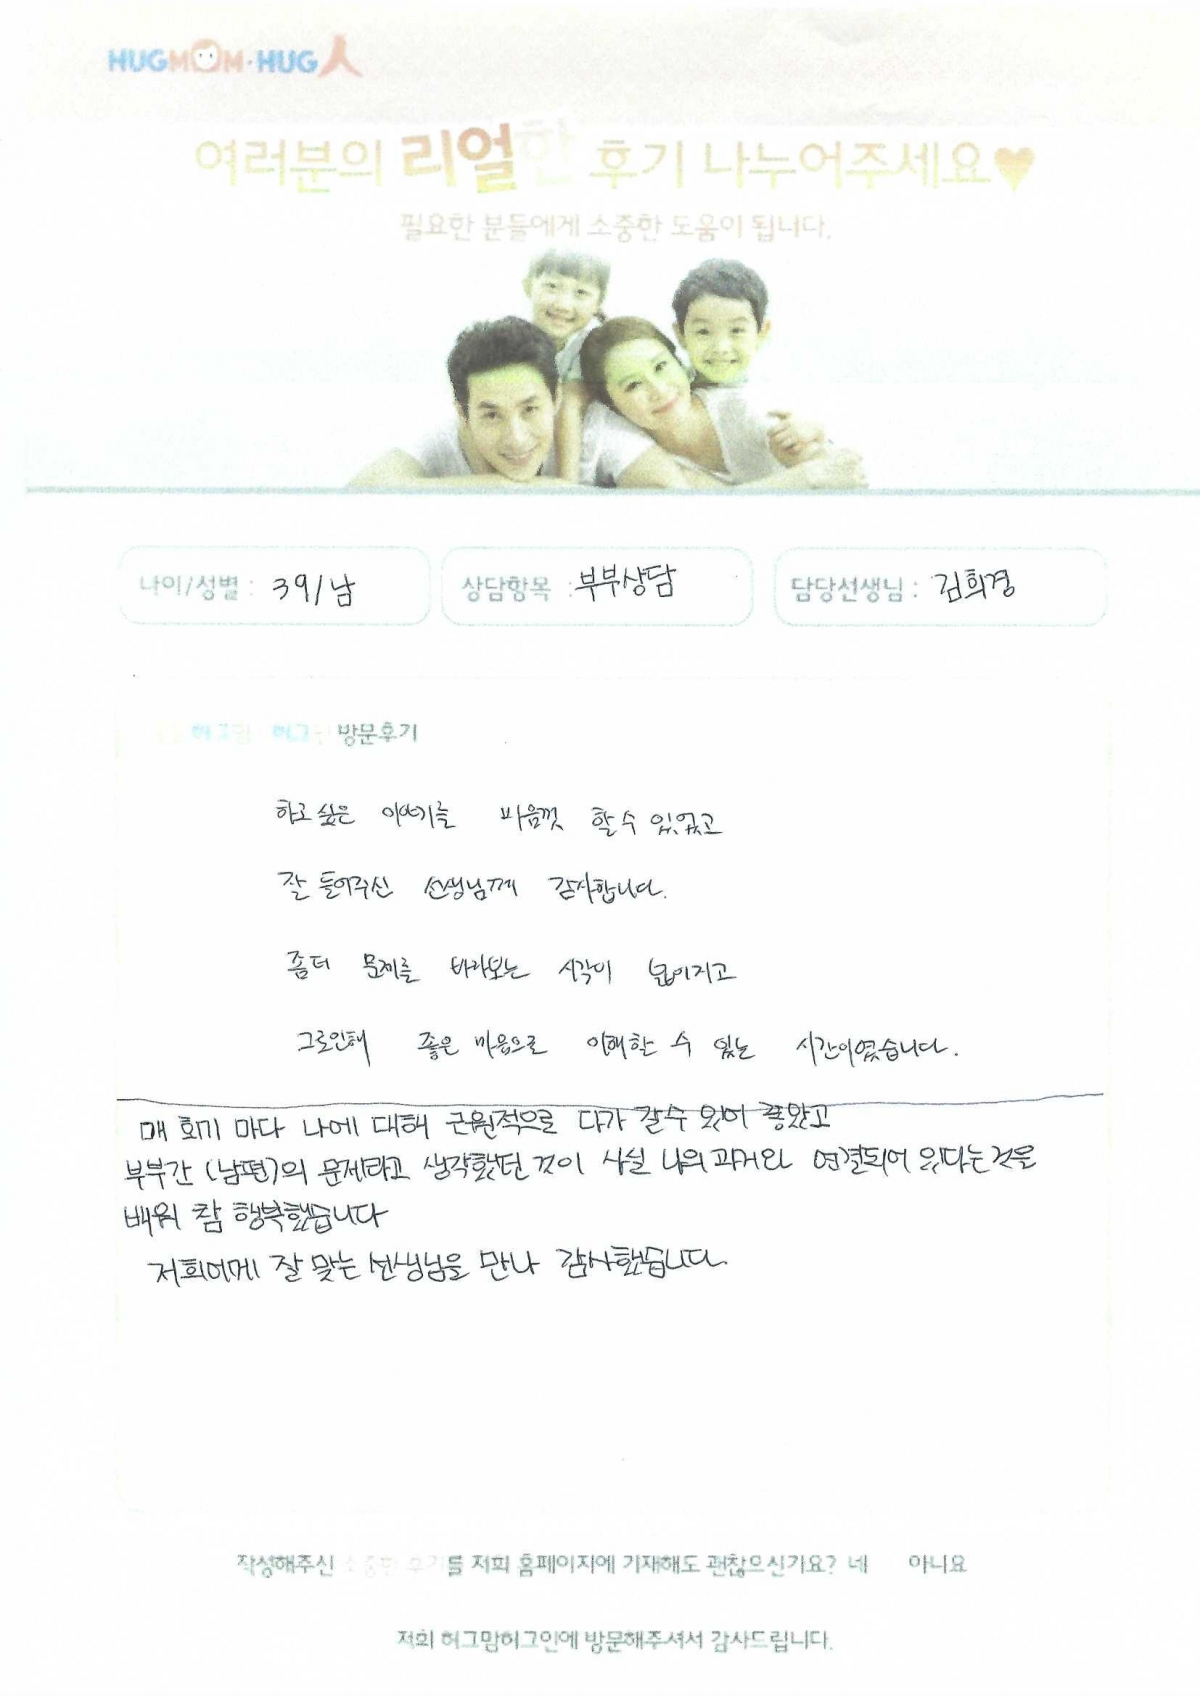 HUGMOM·HUG人
여러분의 리얼한 후기 나누어주세요♥
필요한 분들에게 소중한 도움이 됩니다.
나이/성별 : 39/남
상담항목 : 부부상담
담당선생님 : 김희경
허그맘 허그인 방문후기
하고 싶은 이야기를 마음껏 할 수 있었고
잘 들어주신 선생님께 감사합니다.
좀더 문제를 바라보는 시각이 넓어지고
그로인해 좋은 마음으로 이해할 수 있는 시간이였습니다.
매 회기 마다 나에 대해 근원적으로 다가 갈수 있어 좋았고
부부간 (남편)의 문제라고 생각했던 것이 사실 나의 과거와 연결되어 있다는것을
배워 참 행복했습니다
저희에게 잘 맞는 선생님을 만나 감사했습니다.
작성해주신 소중한 후기를 저희 홈페이지에 기재해도 괜찮으신가요? 네 아니요
저희 허그맘허그인에 방문해주셔서 감사드립니다.